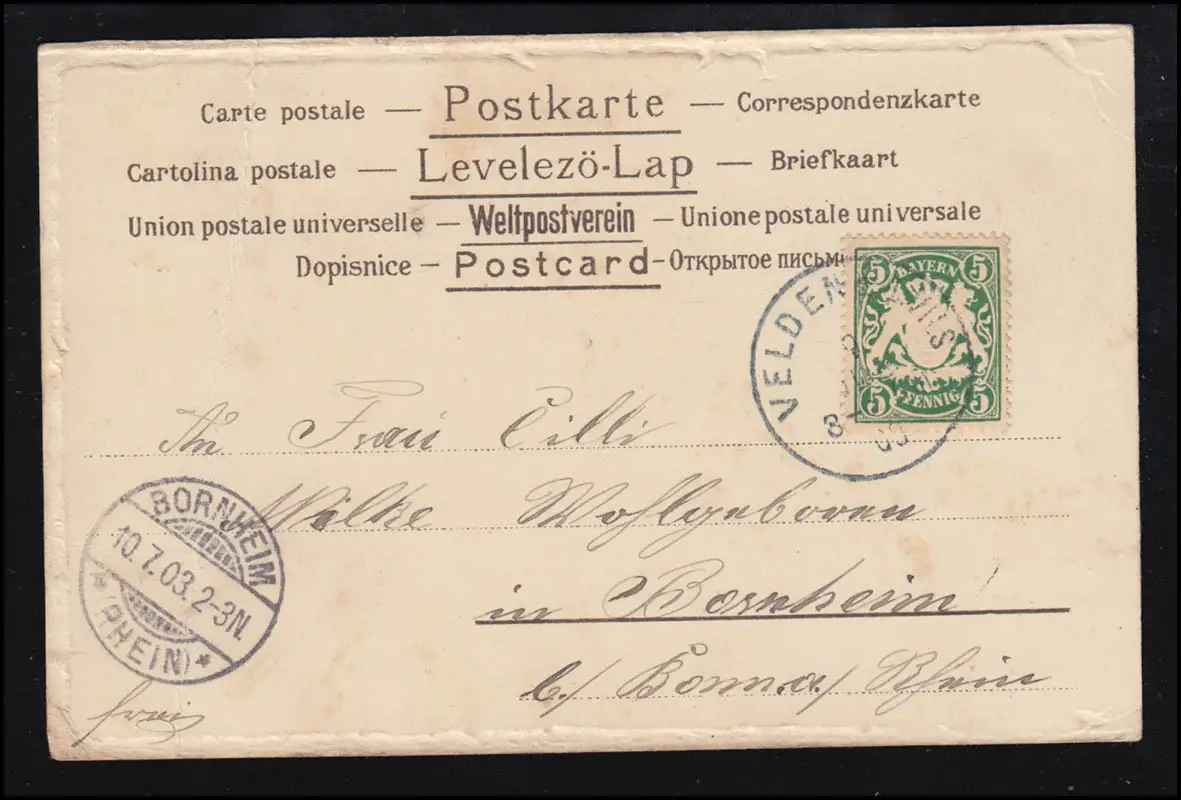 Carte postale — Postkarte — Correspondenzkarte
Cartolina postale — Levelezö-Lap — Briefkaart
Union postale universelle — Weltpostverein — Unione postale universale
Dopisnice — Postcard — Открытое письмо
5 BAYERN 5
5 PFENNIG 5
VELDEN VILS
8
03
An Frau Cilli
Wilke Wohlgeboren
in Bornheim
b./ Bonn a/ Rhein
BORNHEIM
10.7.03.2-3N.
* (RHEIN) *
frei